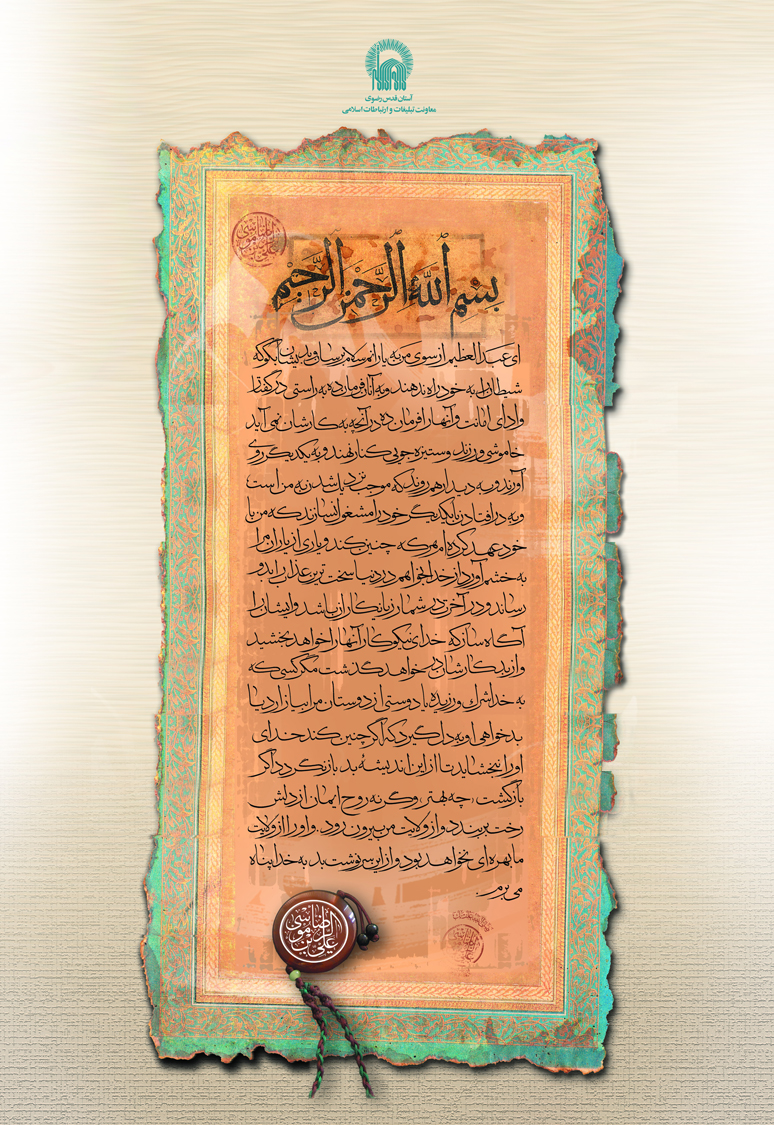 آستان قدس رضوی
معاونت تبلیغات و ارتباطات اسلامی
علی بن موسی الرضا
بسم الله الرحمن الرحیم
ای عبدالعظیم از سوی من به یارانم سلام برسان و بدیشان بگو که
شیطان را به خود راه ندهند و به آنان فرمان ده به راستی در گفتار
و ادای امانت و آنها را فرمان ده در آنچه به کارشان نمی آید
خاموشی ورزند و ستیزه جویی کنار نهند و به یکدیگر روی
آورند و به دیدار هم روند که موجب نزدیک شدن به من است
و به در افتادن با یکدیگر خود را مشغول نسازند که من با
خود عهد کرده ام هر که چنین کند و یاری از یاران مرا
به خشم آورد از خدا خواهم در دنیا سخت ترین عذاب را بدو
رساند و در آخرت در شمار زیانکاران باشد و ایشان را
آگاه ساز که خدای نیکوکار آنها را خواهد بخشید
و از بدکارشان در خواهد گذشت مگر کسی که
به خدا شرک ورزیده یا دوستی از دوستان مرا بیازارد یا
بدخواهی او به دل گیرد که اگر چنین کند خدای
او را نبخشاید تا از این اندیشهٔ بد بازنگردد اگر
بازگشت، چه بهتر وگرنه روح ایمان از دلش
رخت بربندد و از ولایت من بیرون رود. و او را از ولایت
ما بهره ای نخواهد بود و از این سرنوشت بد به خدا پناه
می برم.
علی بن موسی الرضا